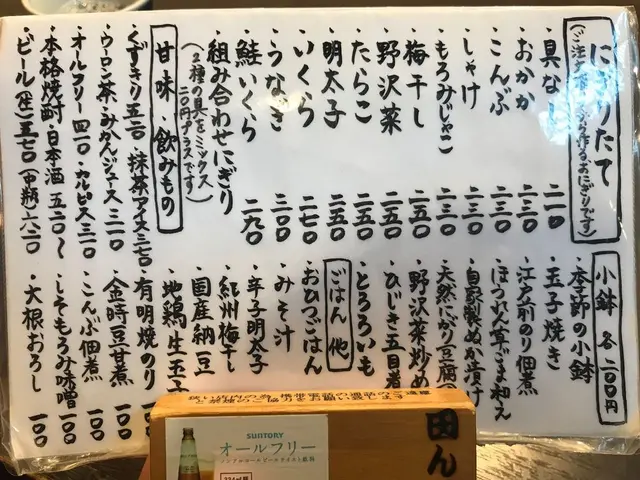 にぎりたて
(ご注文を うかがってから作るおにぎりです)
・具なし 二一〇
・おかか 二三〇
・こんぶ 二三〇
・しゃけ 二三〇
・もろみじゃこ 二三〇
・梅干し 二五〇
・野沢菜 二五〇
・たらこ 二五〇
・明太子 二五〇
・いくら 二七〇
・うなぎ 三〇〇
・鮭いくら 二九〇
・組み合わせにぎり
(2種の具をミックス 20円プラスです)
甘味・飲みもの
・くずきり 五一〇 ・抹茶アイス 三一〇
・ウーロン茶・みかんジュース 三一〇
・オールフリー 四一〇 ・カルピス 三一〇
・本格焼酎・日本酒 五二〇〜
・ビール(生) 五七〇 (中瓶) 六二〇
小鉢 各二〇〇円
・季節の小鉢
・玉子焼き
・江戸前のり佃煮
・ほうれん草ごま和え
・自家製ぬか漬け
・天然にがり豆腐
・野沢菜炒め
・ひじき五目煮
・とろろいも
ごはん 他
・おひつごはん
・みそ汁
・辛子明太子
・紀州梅干し
・国産納豆
・地鶏生玉子
・有明焼のり 一〇〇
・金時豆甘煮 一〇〇
・こんぶ佃煮 一〇〇
・しそもろみ味噌 一〇〇
・大根おろし 一〇〇
狭い店内の為、携帯電話の通話のご遠慮
と禁煙のご協力をお願い致します
田ん
SUNTORY
オールフリー
ノンアルコールビールテイスト飲料
334ml瓶